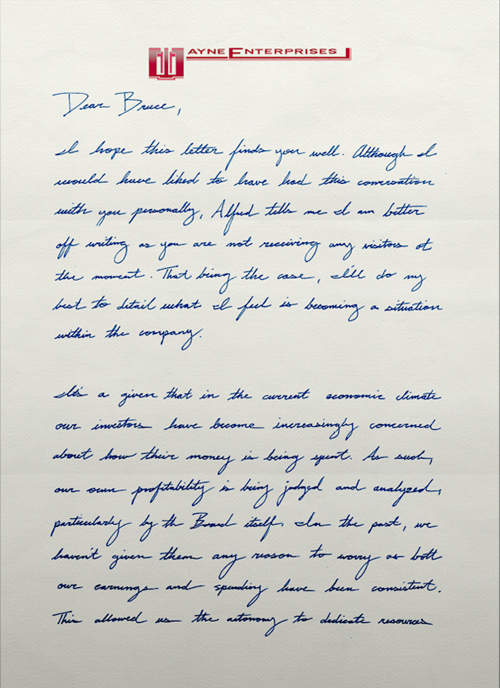 WAYNE ENTERPRISES
Dear Bruce,
I hope this letter finds you well. Although I
would have liked to have had this conversation
with you personally, Alfred tells me I am better
off writing as you are not receiving any visitors at
the moment. That being the case, I'll do my
best to detail what I feel is becoming a situation
within the company.
It's a given that in the current economic climate
our investors have become increasingly concerned
about how their money is being spent. As such,
our own profitability is being judged and analyzed,
particularly by th Board itself. In the past, we
haven't given them any reason to worry as both
our earnings and spending have been consistent.
This allowed us the autonomy to dedicate resources